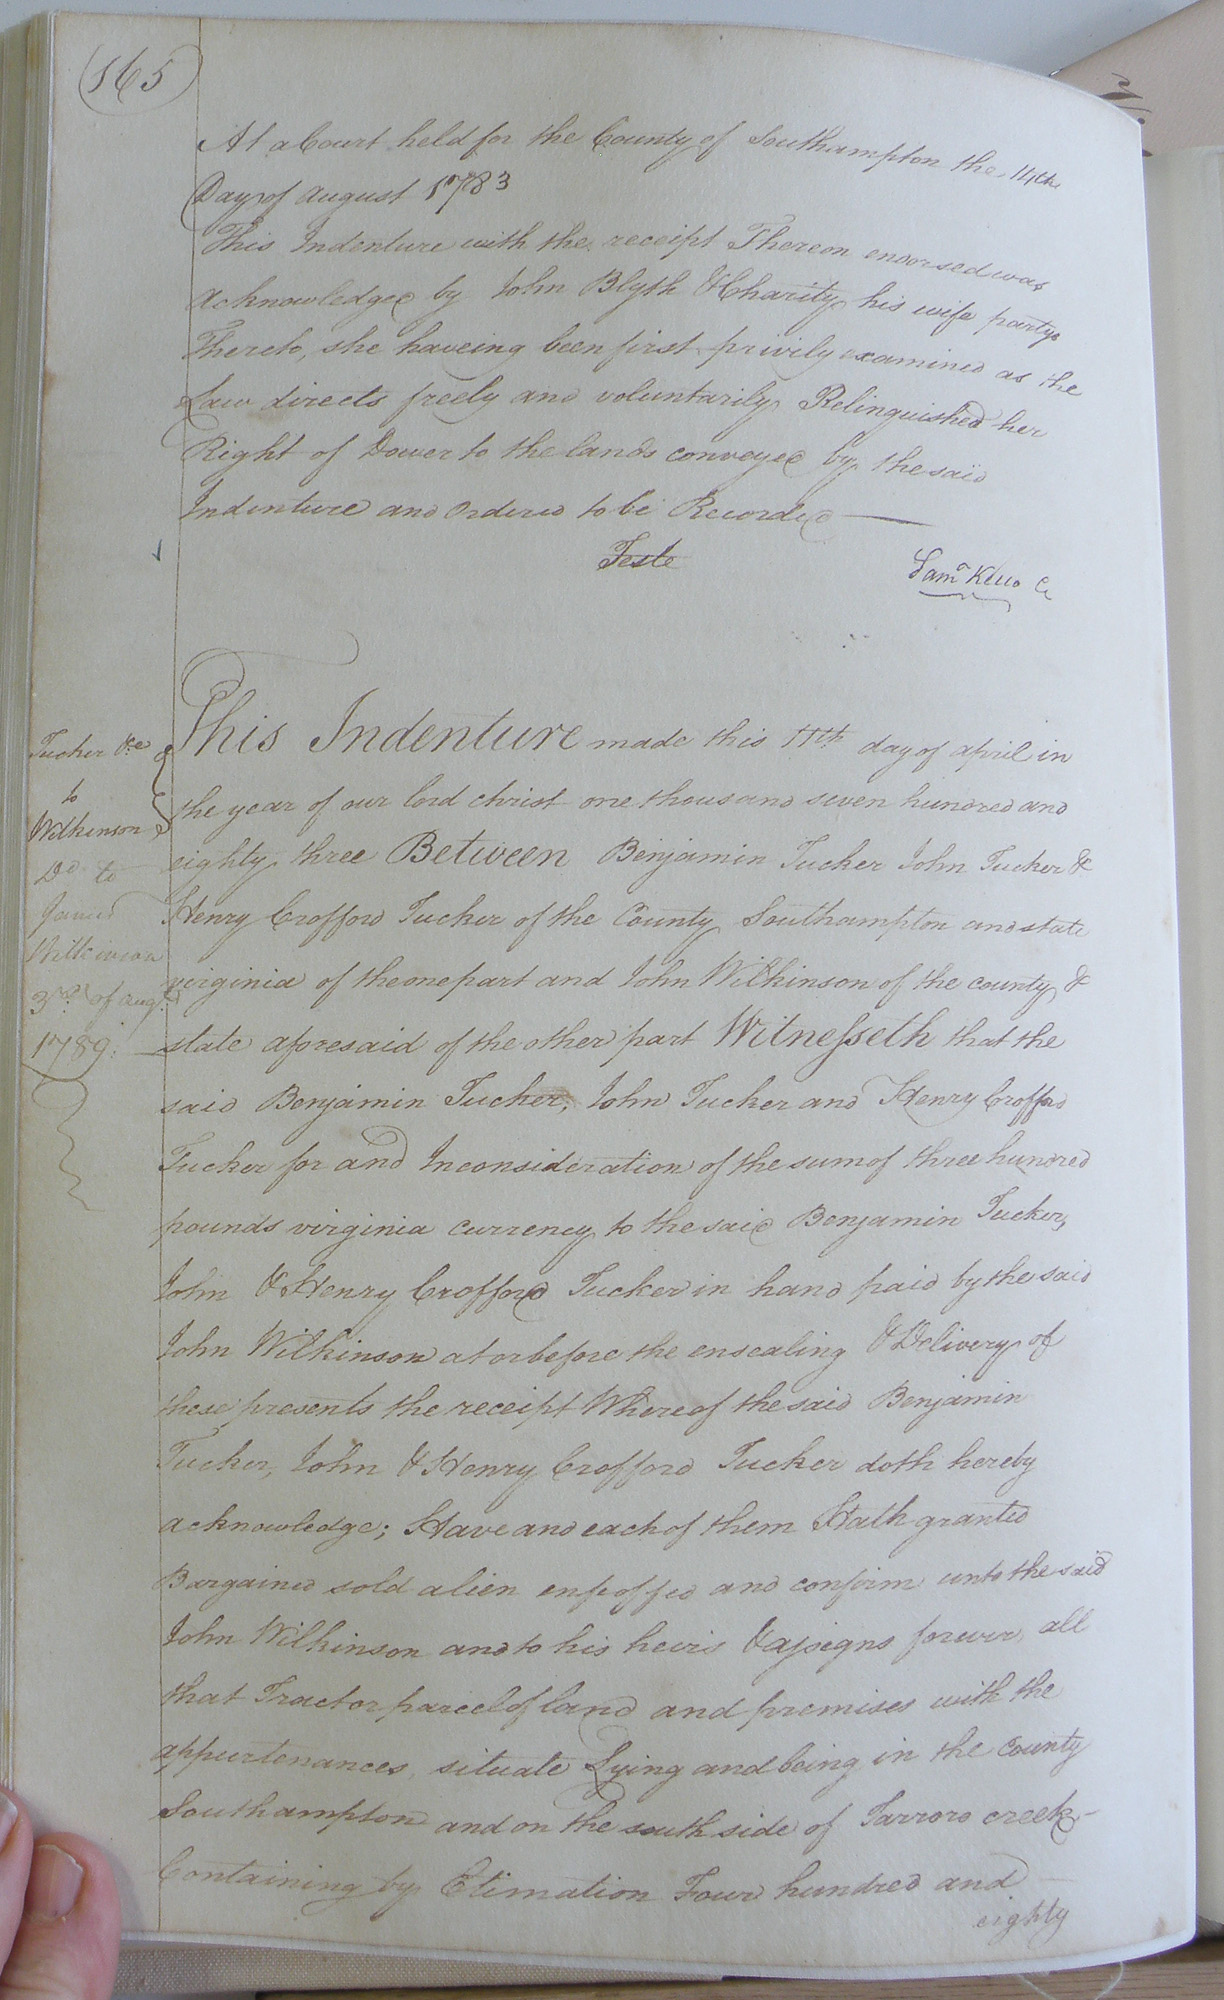 165
At a Court held for the County of Southampton the 14th
Day of August 1783
This Indenture with the receipt Thereon endorsed was
Acknowledged by John Blyth & Charity his wife partys
Thereto, she haveing been first privily examined as the
Law directs freely and voluntarily Relinquished her
Right of Dower to the lands conveyed by the said
Indenture and Ordered to be Recorded
Teste
Samˡ Kello Cˡᵏ
Tucker &c
to
Wilkinson
Dd. to
James
Wilkinson
3rd. of Augt.
1789.
This Indenture made this 11th day of april in
the year of our lord christ one thousand seven hundred and
eighty three Between Benjamin Tucker John Tucker &
Henry Crofford Tucker of the County Southampton and state
virginia of the one part and John Wilkinson of the county &
state aforesaid of the other part Witnesseth that the
said Benjamin Tucker, John Tucker and Henry Crofford
Tucker for and Inconsideration of the sum of three hundred
pounds virginia currency to the said Benjamin Tucker,
John & Henry Crofford Tucker in hand paid by the said
John Wilkinson at or before the ensealing & Delivery of
these presents the receipt Whereof the said Benjamin
Tucker, John & Henry Crofford Tucker doth hereby
acknowledge; Have and each of them Hath granted
Bargained sold alien enfeoffed and confirm unto the said
John Wilkinson and to his heirs & assigns forever all
that Tract or parcel of land and premises with the
appurtenances situate Lying and being in the county
Southampton and on the south side of Tarroro creek
Containing by Etimation Four hundred and
eighty